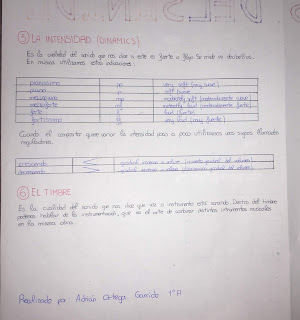 ⑤ LA INTENSIDAD (DINAMICS)
Es la cualidad del sonido que nos dice si este es fuerte o flojo. Se mide en decibelios.
En música utilizamos estas indicaciones:
pianissimo pp very soft (muy suave)
piano p soft (suave)
mezzopiano mp moderately soft (moderadamente suave)
mezzoforte mf moderately loud (moderadamente fuerte)
forte f loud (fuerte)
fortissimo ff very loud (muy fuerte)
Cuando el compositor quiere variar la intensidad poco a poco utilizamos unos signos llamados
reguladores.
crescendo gradual increase in volume (aumento gradual del volumen)
gradual decrease in volume (disminución gradual del volumen)
⑥ EL TIMBRE
Es la cualidad del sonido que nos dice que voz o instrumento está sonando. Dentro del timbre
podemos hablar de la instrumentación, que es el arte de combinar distintos instrumentos musicales
en la misma obra.
Realizado por Adrián Ortega Garrido 1ºA